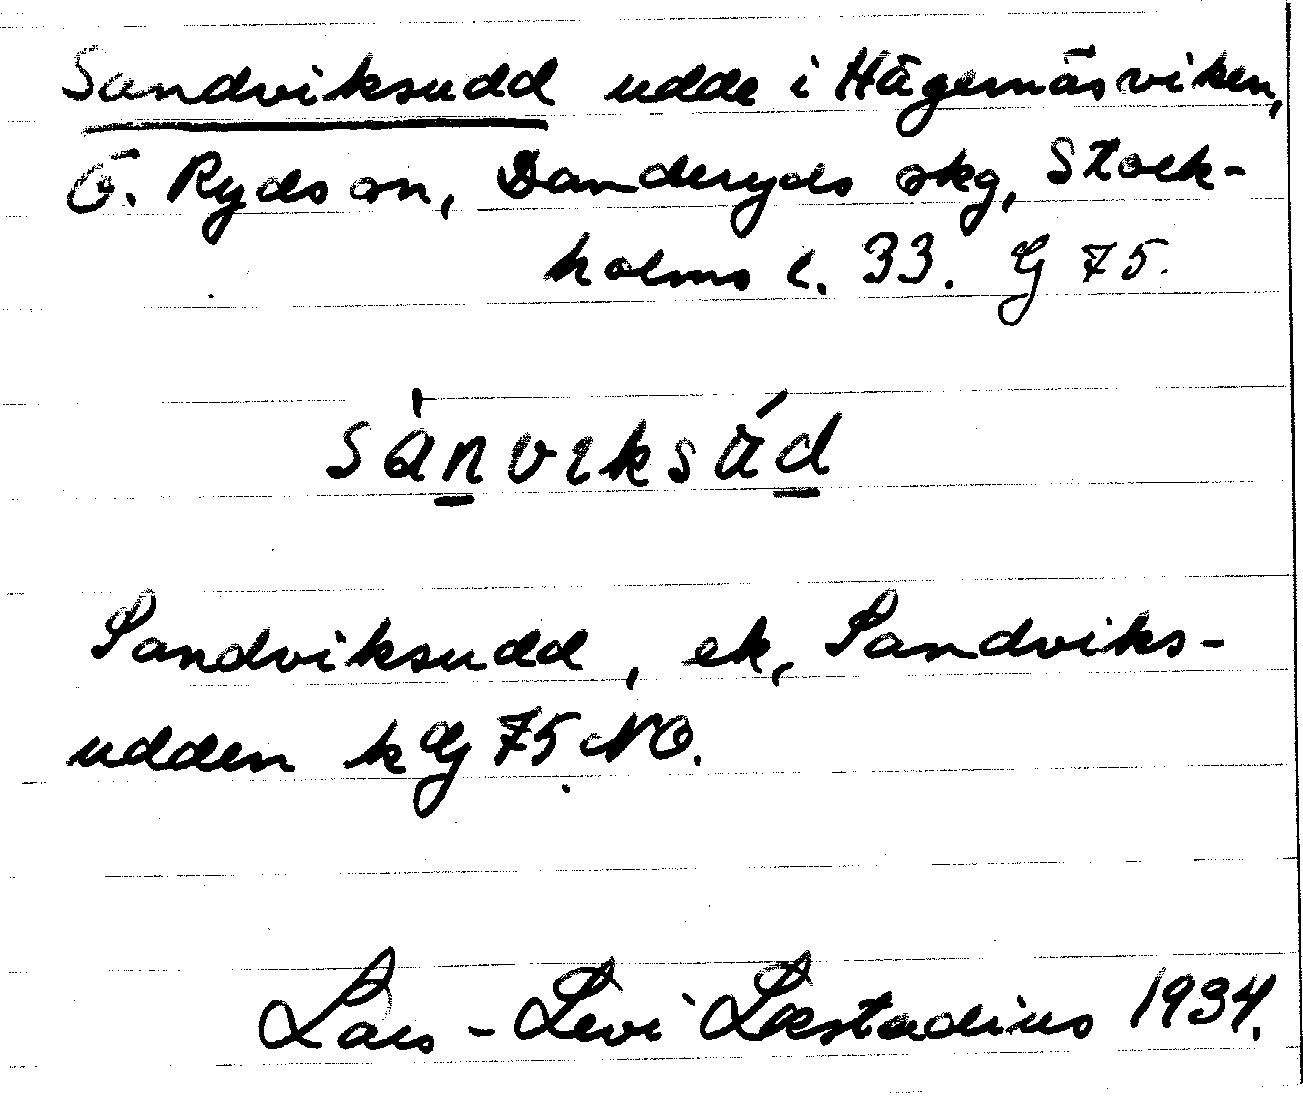 Sandviksudd udde i Hägernäsviken,
Ö. Ryds sn, Danderyds skg, Stock-
holms l. 33. G 75.
sànviksúd
Sandviksudd, ek, Sandviks-
udden k G 75 NO.
Lars-Levi Læstadius 1934.